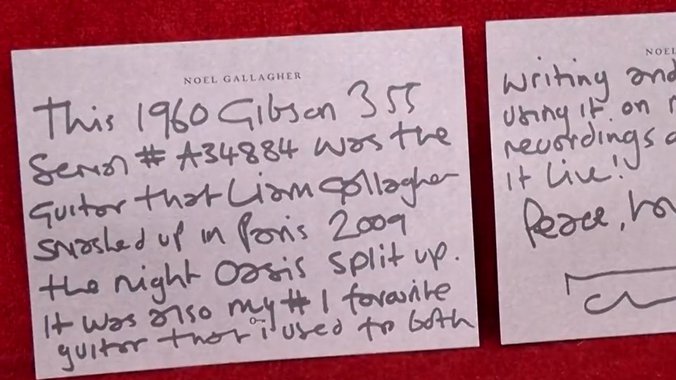 NOEL GALLAGHER
This 1960 Gibson 355
Serial # A34884 was the
guitar that Liam Gallagher
smashed up in Paris 2009
the night Oasis split up.
It was also my # 1 favourite
guitar that i used to both
NOEL
writing and
using it on
recordings
it live!
Peace,